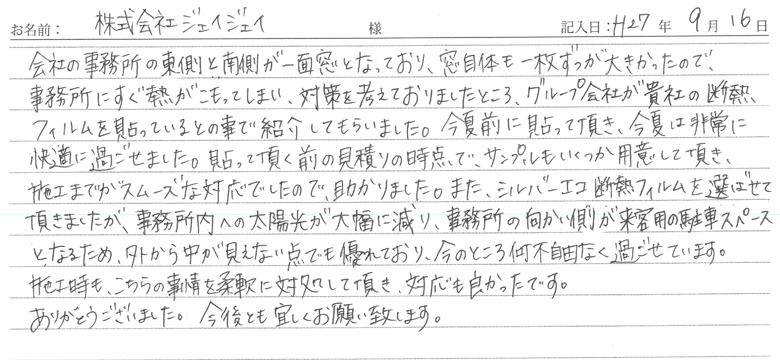 お名前: 株式会社ジェイジェイ 様 記入日:H27年 9月 16日
会社の事務所の東側と南側が一面窓となっており、窓自体も一枚ずつが大きかったので、
事務所にすぐ熱がこもってしまい、対策を考えておりましたところ、グループ会社が貴社の断熱
フィルムを貼っているとの事で紹介してもらいました。今夏前に貼って頂き、今夏は非常に
快適に過ごせました。貼って頂く前の見積りの時点で、サンプルもいくつか用意して頂き、
施工までがスムーズな対応でしたので、助かりました。また、シルバーエコ断熱フィルムを選ばせて
頂きましたが、事務所内への太陽光が大幅に減り、事務所の向かい側が来客用の駐車スペース
となるため、外から中が見えない点でも優れており、今のところ何不自由なく過ごせています。
施工時も、こちらの事情を柔軟に対処して頂き、対応も良かったです。
ありがとうございました。今後とも宜しくお願い致します。